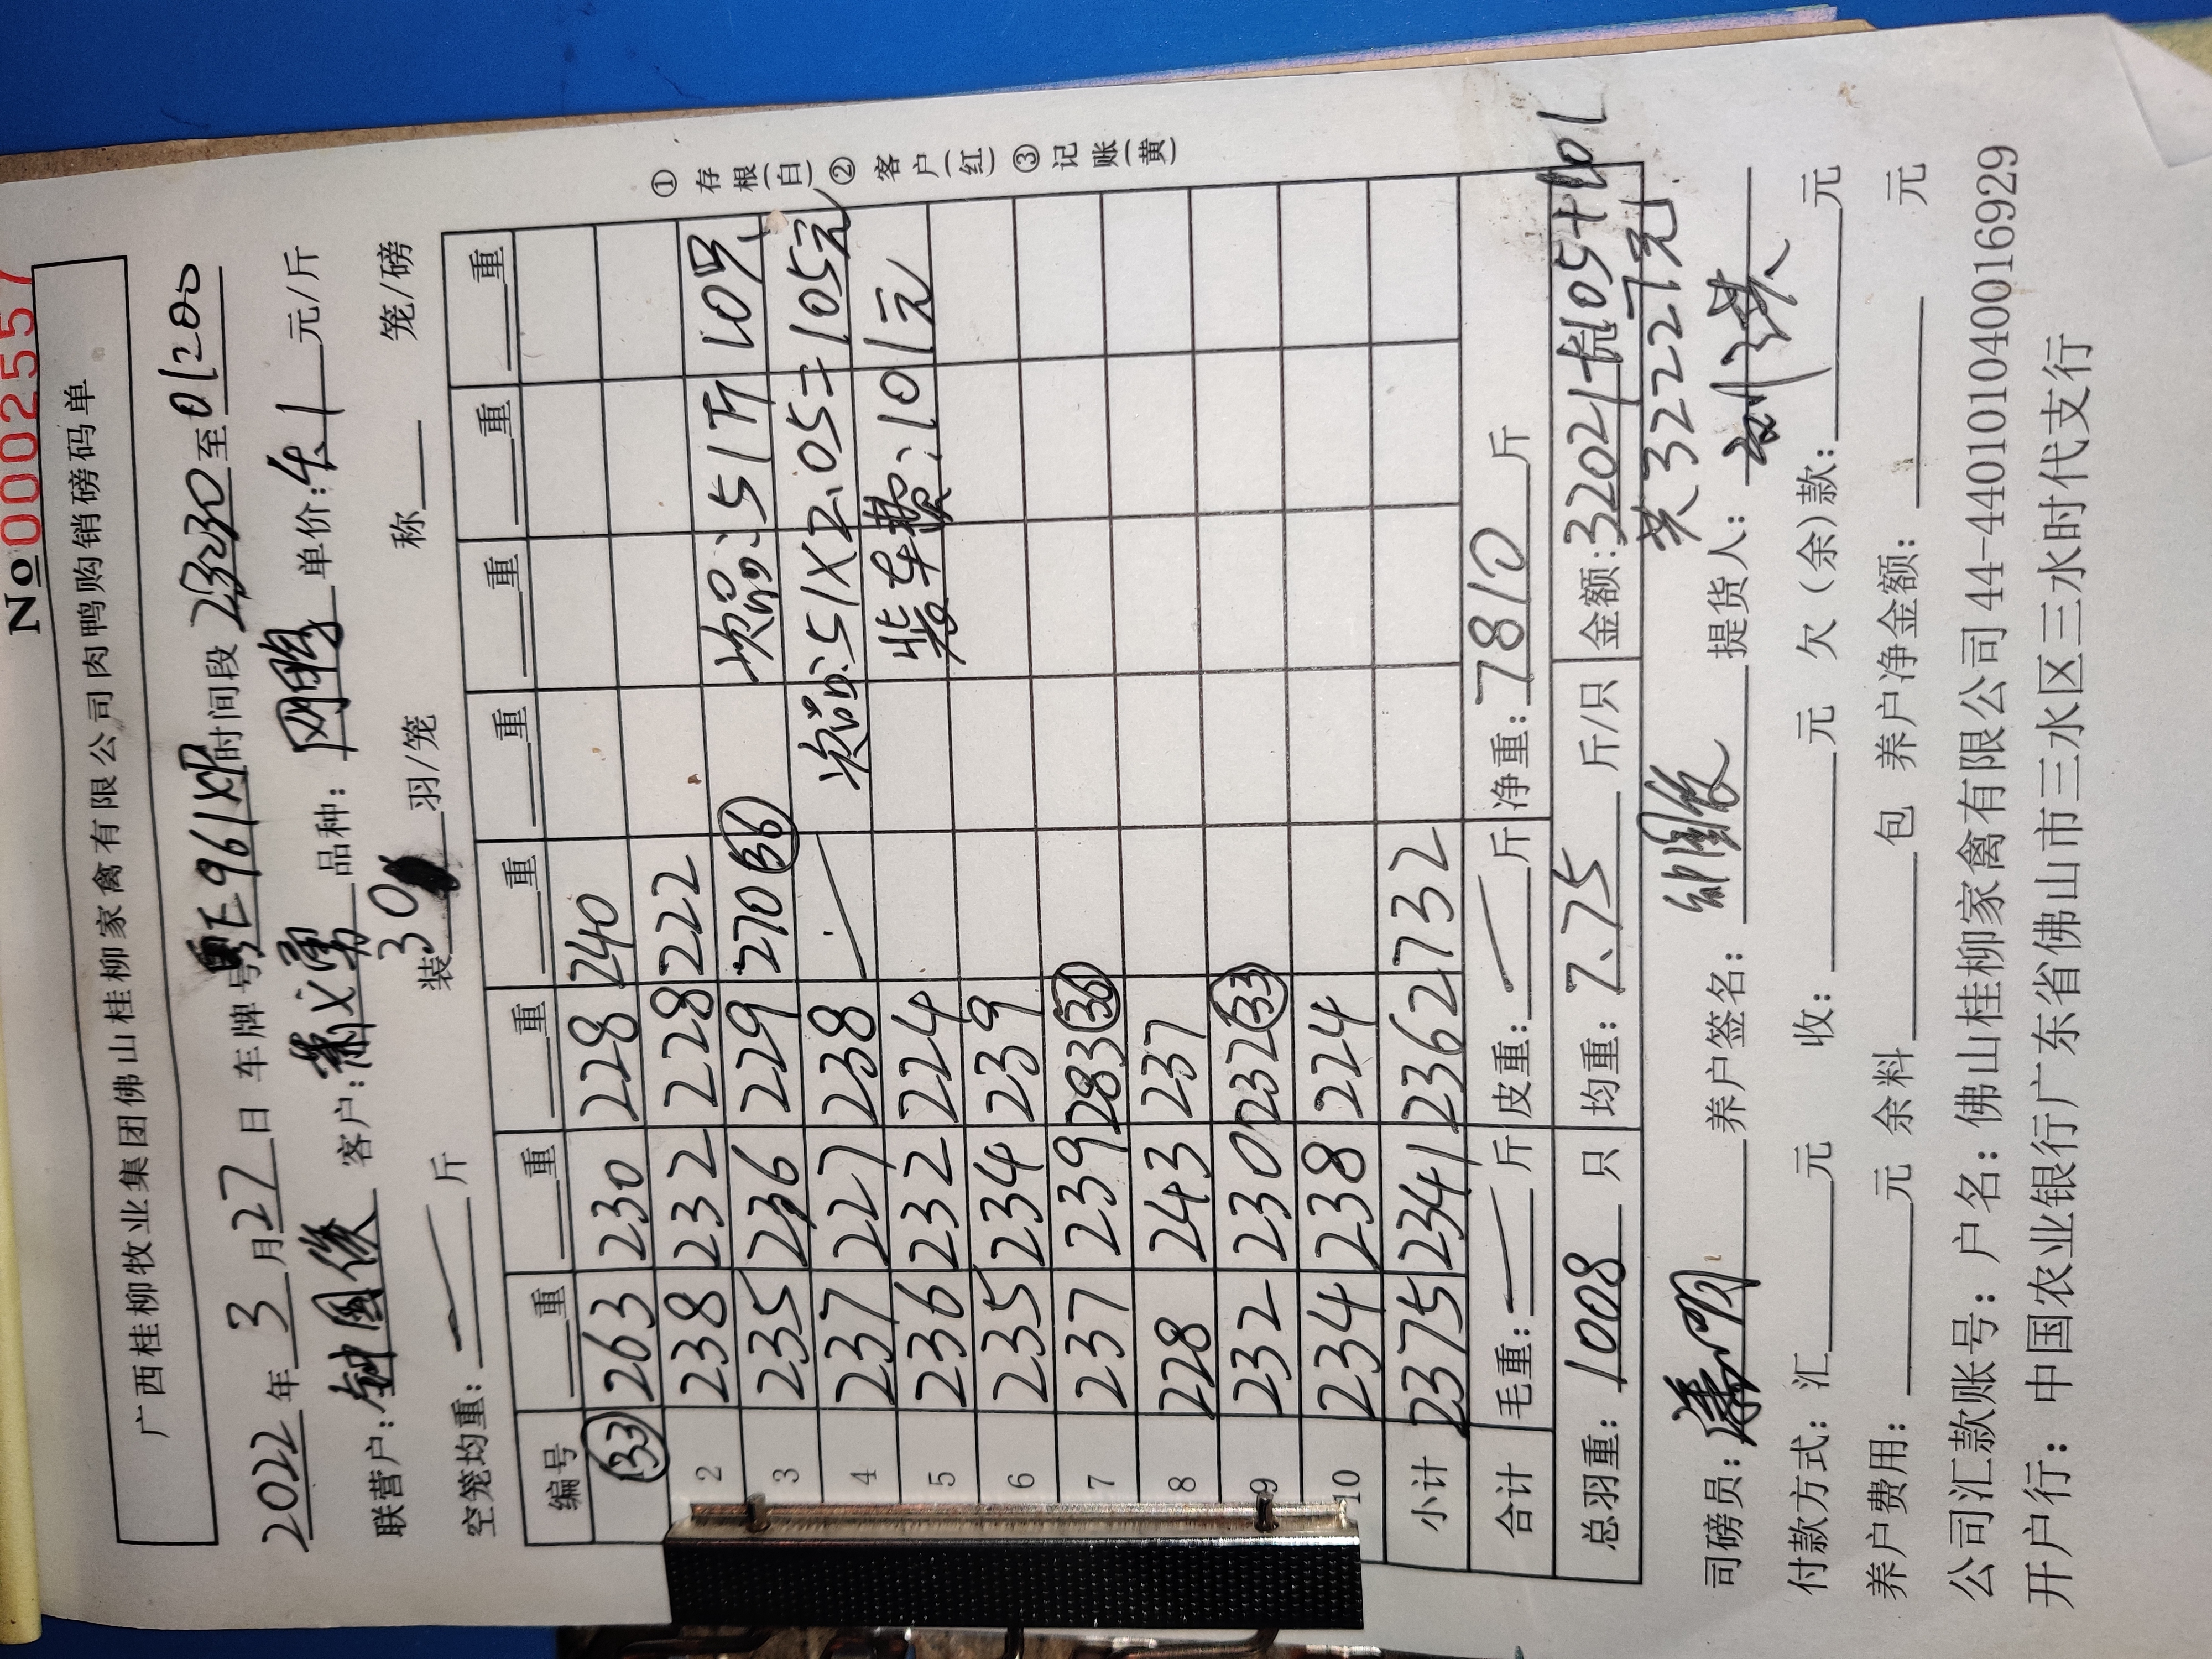 No 0002557
广西桂柳牧业集团佛山桂柳家禽有限公司肉鸭购销磅码单
2022年3月27日 车牌号 粤E961XP 时间段 2330至01200
联营户:钟国俊 客户: 品种: 单价:4.1元/斤
空笼均重: 斤 装30羽/笼 称 笼/磅
编号 重 重 重 重 重 重 重 重
(33) 263 230 228 240
2 238 232 228 222
3 235 236 229 270(36) 次品:51斤 10只
4 237 227 238 次品:51×2.05=105元
5 236 232 224 柴车费:101元
6 235 234 239
7 237 239 283(36)
8 228 243 237
9 232 230 232(33)
10 234 238 224
小计 2375 2341 2362 732
合计 毛重: 斤 皮重: 斤 净重:7810斤
总羽重:1008只 均重:7.75斤/只 金额:32021+105+101
共32227元
司磅员: 养户签名: 提货人:
付款方式:汇 元 收: 元 欠(余)款: 元
养户费用: 元 余料 包 养户净金额: 元
公司汇款账号:户名:佛山桂柳家禽有限公司44-440101040016929
开户行:中国农业银行广东省佛山市三水区三水时代支行
①存根(白)②客户(红)③记账(黄)